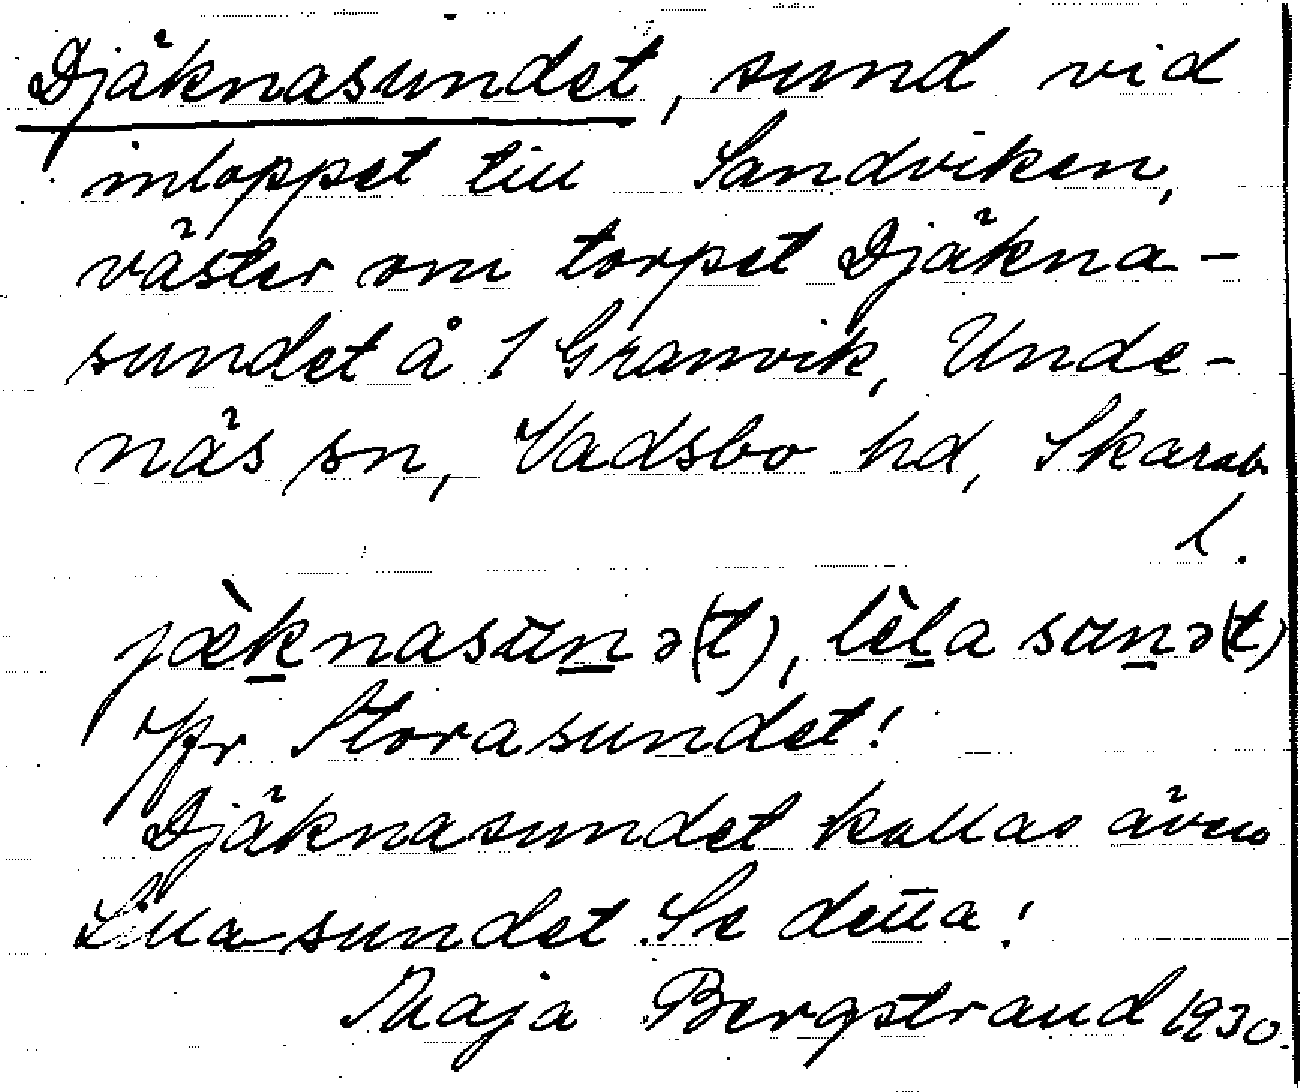 Djäknasundet, sund vid
inloppet till Sandviken,
väster om torpet Djäkna-
sundet å 1 Granvik, Unde-
näs sn, Vadsbo hd, Skarab.
l.
jæ̀knasun̲ə(t), lèl̲a sun̲ə(t)
Jfr Storasundet!
Djäknasundet kallas även
Lilla sundet. Se detta!
Maja Bergstrand 1930.